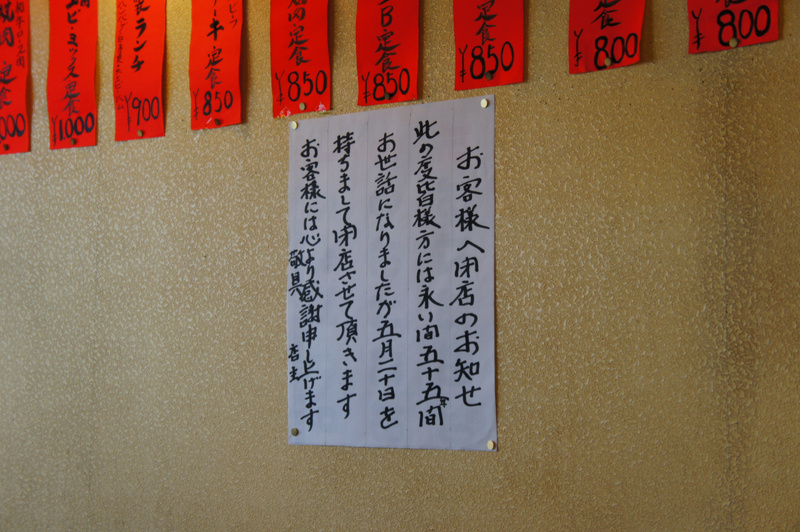 お客様へ閉店のお知せ
此の度皆様方には永い間五十五年間
お世話になりましたが五月二十日を
持ちまして閉店させて頂きます
お客様には心より感謝申し上げます
敬具 店主
¥800
¥800
定食 ¥850
B定食 ¥850
焼肉定食 ¥850
ビーフ
キ定食 ¥850
ランチ ¥900
エビ・ミックス定食 ¥1000
焼肉定食